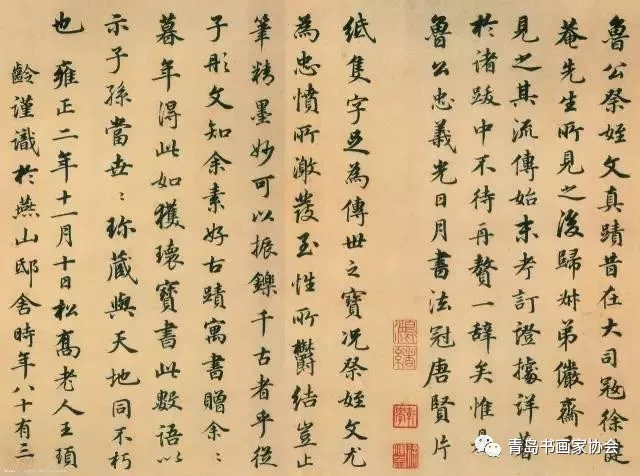 魯公祭姪文真蹟昔在大司寇徐健
菴先生所見之後歸弟儼齋
見之其流傳始末考訂證據詳着
於諸跋中不待再贅一辭矣惟是
魯公忠義光日月書法冠唐賢片
紙隻字足為傳世之寶況祭姪文尤
為忠憤所激發至性所鬱結豈止
筆精墨妙可以振鑠千古者乎從
子彤文知余素好古蹟寓書贈余〻
暮年得此如獲瓌寶書此數語以
示子孫當世〻珍藏與天地同不朽
也 雍正二年十一月十日松喬老人王頊
齡謹識於燕山邸舍時年八十有三
青岛书画家协会